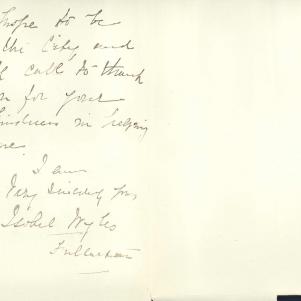 hope to be
the City and
call to thank
for your
kindness in helping
me
I am
Very Sincerely yrs,
Isobel Wyles